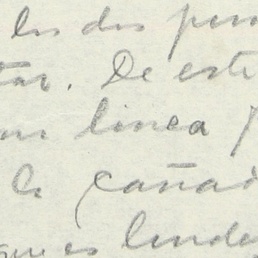 los dos
tar. De este
linea
la cañad
que es linde